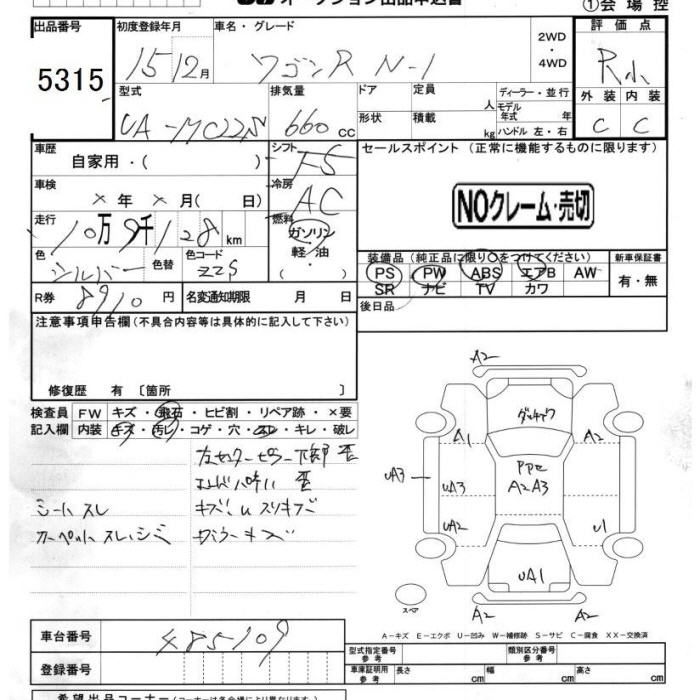 オークション出品申込書
①会場控
出品番号
5315
初度登録年月
車名・グレード
15 12月
ワゴンR N-1
2WD
・
4WD
評価点
R小
外装 内装
C C
型式
排気量
ドア
定員
人
ディーラー・並行
モデル年式 年
UA-MC22S
660 cc
形状
積載
kg
ハンドル 左・右
車歴
自家用・( )
シフト
F5
セールスポイント (正常に機能するものに限ります)
車検
× 年 × 月( 日)
冷房
AC
NOクレーム・売切
走行
10万9千128 km
燃料
ガソリン
・
軽油
・
( )
色
シルバー
色替
色コード
ZZS
装備品(純正品に限り○をつけてください)
PS PW ABS エアB AW
SR ナビ TV カワ
新車保証書
有・無
R券
8910円
名変通知期限 月 日
後日品
注意事項申告欄(不具合内容等は具体的に記入して下さい)
修復歴 有〔箇所 〕
検査員
記入欄
FW キズ・飛石・ヒビ割・リペア跡・×要
内装 キズ・汚レ・コゲ・穴・スレ・キレ・破レ
左センターピラー下部歪
エンドパネル歪
シートスレ
キズ、Uスリキズ
カーペットスレ、シミ
ガラーキズ
A2
A1
A2
UA3
UA3
A2A3
UA2
U1
UA1
A2
A2
スペア
A−キズ E−エクボ U−凹み W−補修跡 S−サビ C−腐食 XX−交換済
車台番号
485109
登録番号
型式指定番号
参考
類別区分番号
参考
車庫証明用
参考
長さ cm
幅 cm
高さ cm
希望出品コーナー(コーナーは各会場により異なります)